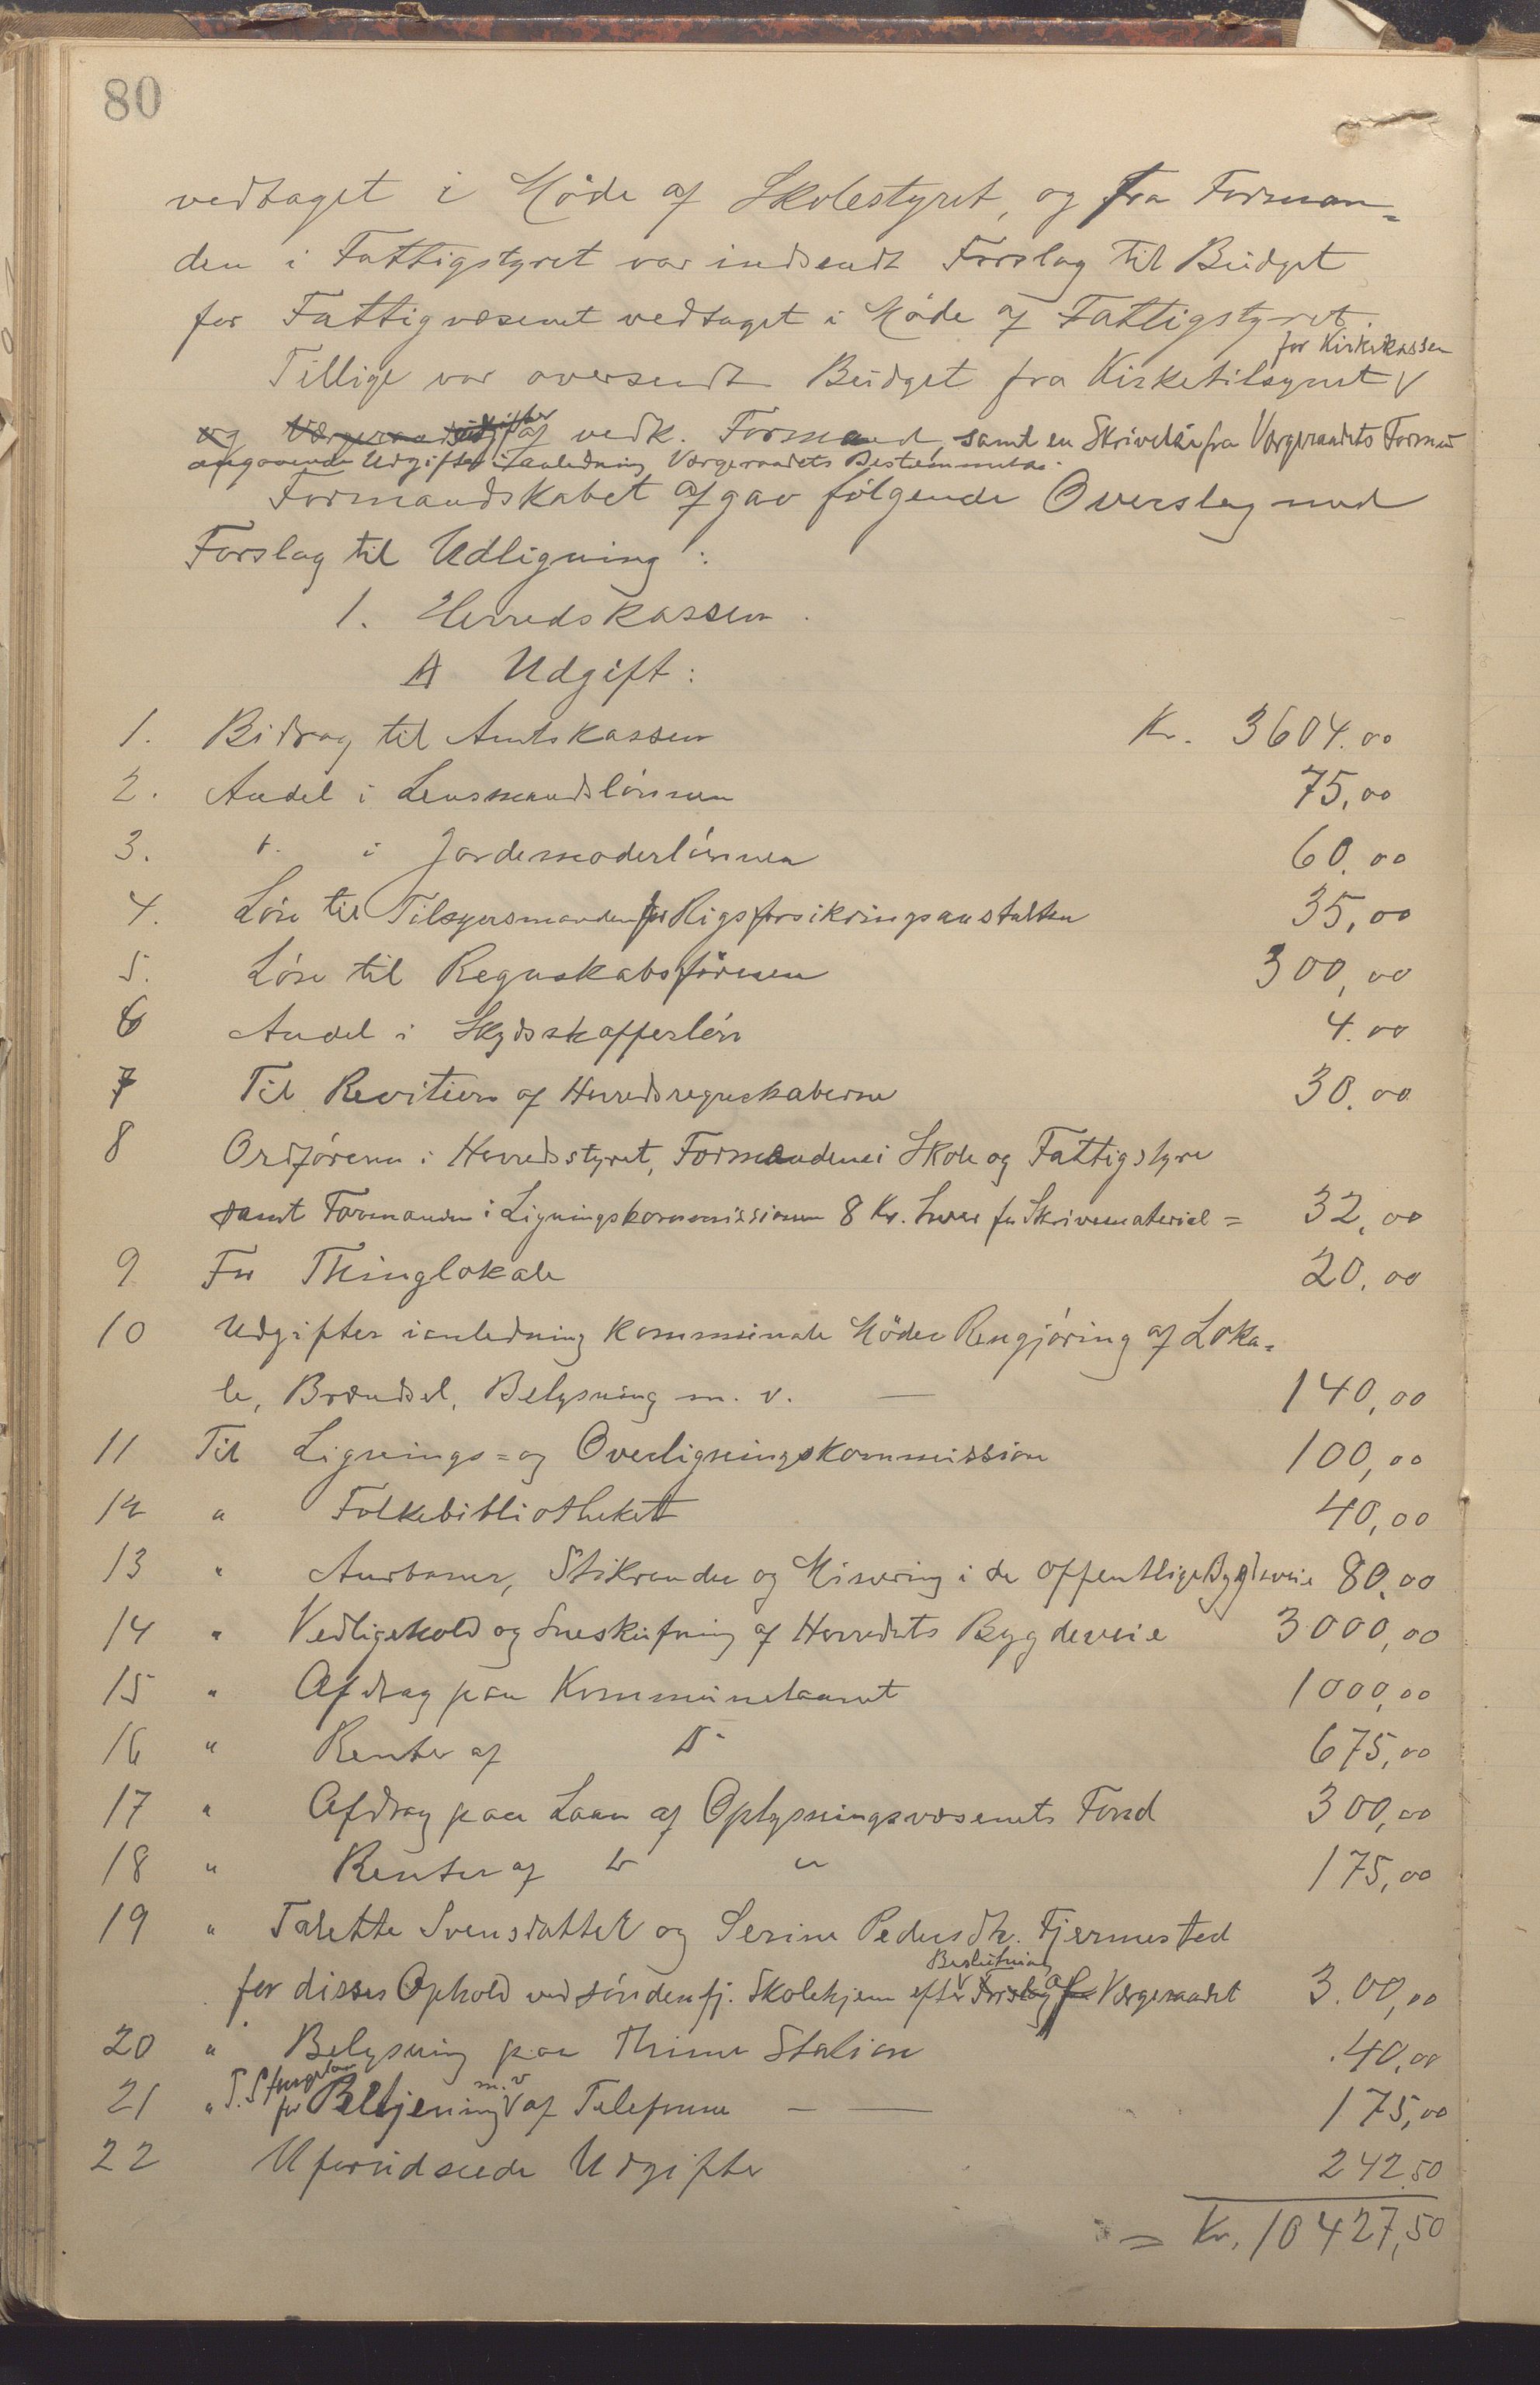 80
vedtaget i Møde af Skolestyret, og fra Forman=
den i Fattigstyret var indsendt Forslag til Budget
for Fattigvæsenet vedtaget i Møde af Fattigstyret.
for Kirkekassen
Tillige var oversendt Budget fra Kirketilsynet V
og Værgeraadsudgifter af vedk. Formand, samt en Skrivelse fra Værgeraadets Formand
angaaende Udgifter i Anledning Værgeraadets Bestemmelse.
Formandskabet afgav følgende Overslag med
Forslag til Udligning:
1. Herredskassen.
A Udgift:
1. Bidrag til Amtskassen Kr. 3604.00
2. Andel i Lensmandslønnen 75,00
3. " i Jordemoderlønnen 60.00
4. Løn til Tilsynsmanden for Rigsforsikringsanstalten 35,00
5. Løn til Regnskabsføreren 300,00
6 Andel i Skydsskafferløn 4.00
7 Til Revition af Herredsregnskaberne 30.00
8 Ordføreren i Herredsstyret, Formandene i Skole og Fattigstyre
samt Formanden i Ligningskommissionen 8 Kr. hver for Skrivematerial = 32,00
9 For Thinglokale 20.00
10 Udgifter ianledning kommunale Møder Rengjøring af Loka=
le, Brændsel, Belysning m. v. — 140,00
11 Til Lignings= og Overligningskommission 100,00
12 " Folkebibliotheket 40,00
13 " Aurbaner, Stikrender og Minering i de offentlige Bygdeveie 80.00
14 " Vedligehold og Sneskufning af Herredets Bygdeveie 3000,00
15 " Afdrag paa Kommunelaanet 1000,00
16 " Renter af D- 675,00
17 " Afdrag paa Laan af Oplysningsvæsenets Fond 300,00
18 " Renter af " " 175,00
19 " Talette Svensdatter og Serine Pedersdtr. Fjermestad
Beslutning
for disses Ophold ved søndenfj. Skolehjem efter V Forslag af Værgeraadet 300,00
20 " Belysning paa Thime Station 40,00
21 " T. Stangeland for Betjening m. v V af Telefonen — — 175,00
22 Uforudseede Udgifter 242.50
= Kr. 10427,50